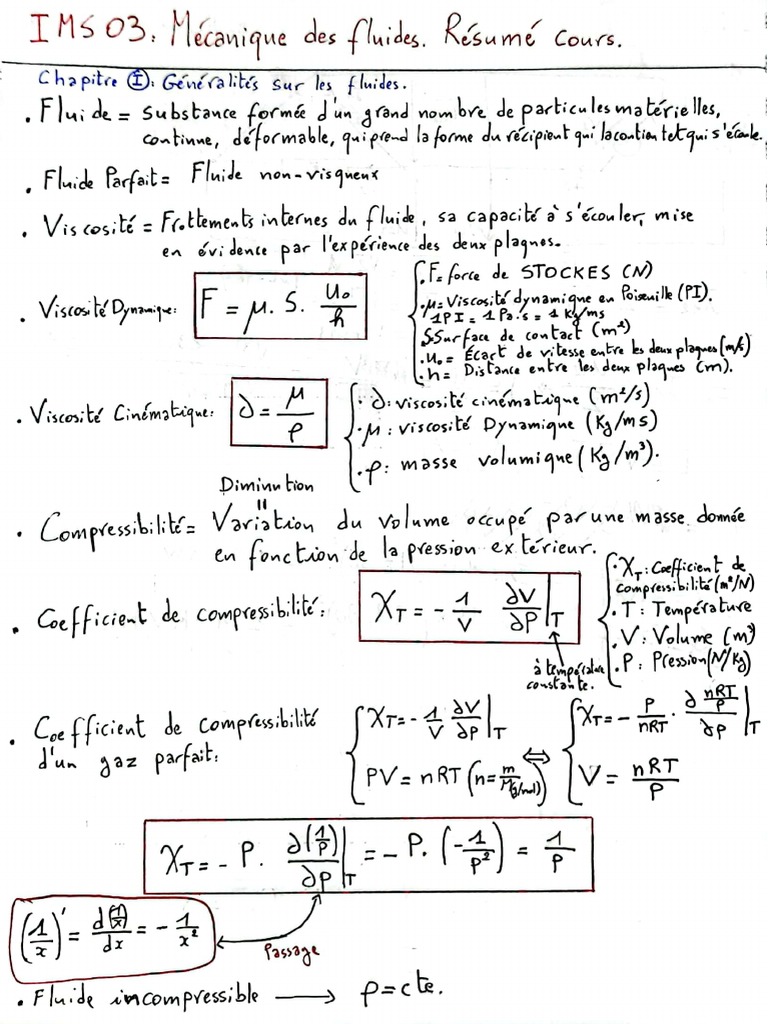 IMS03: Mécanique des fluides. Résumé cours.
Chapitre I: Généralités sur les fluides.
. Fluide = Substance formée d'un grand nombre de particules matérielles,
continue, déformable, qui prend la forme du récipient qui la contient et qui s'écoule.
. Fluide Parfait = Fluide non-visqueux
. Viscosité = Frottements internes du fluide, sa capacité à s'écouler, mise
en évidence par l'expérience des deux plaques.
. Viscosité Dynamique: F = μ. S. u₀/h
. F = force de STOCKES (N)
. μ = Viscosité dynamique en Poiseuille (PI).
1PI = 1 Pa.s = 1 Kg/ms
S: Surface de contact (m²)
. u₀ = Écart de vitesse entre les deux plaques (m/s)
. h = Distance entre les deux plaques (m).
. Viscosité Cinématique: ∂ = μ/ρ
. ∂: viscosité cinématique (m²/s)
. μ: viscosité Dynamique (Kg/ms)
. ρ: masse volumique (Kg/m³).
Diminution
"
. Compressibilité = Variation du volume occupé par une masse donnée
en fonction de la pression extérieur.
. Coefficient de compressibilité: χT = - 1/V ∂V/∂P |T
à température
constante.
. χT: Coefficient de
compressibilité (m²/N)
. T: Température
. V: Volume (m³)
. P: Pression (N/Kg)
. Coefficient de compressibilité
d'un gaz parfait:
χT = - 1/V ∂V/∂P |T
PV = nRT (n = m/M(g/mol))
⇔
χT = - P/nRT . ∂(nRT/P)/∂P |T
V = nRT/P
χT = - P. ∂(1/P)/∂P |T = - P. (-1/P²) = 1/P
(1/x)' = d(1/x)/dx = - 1/x²
Passage
. Fluide incompressible → ρ = cte.